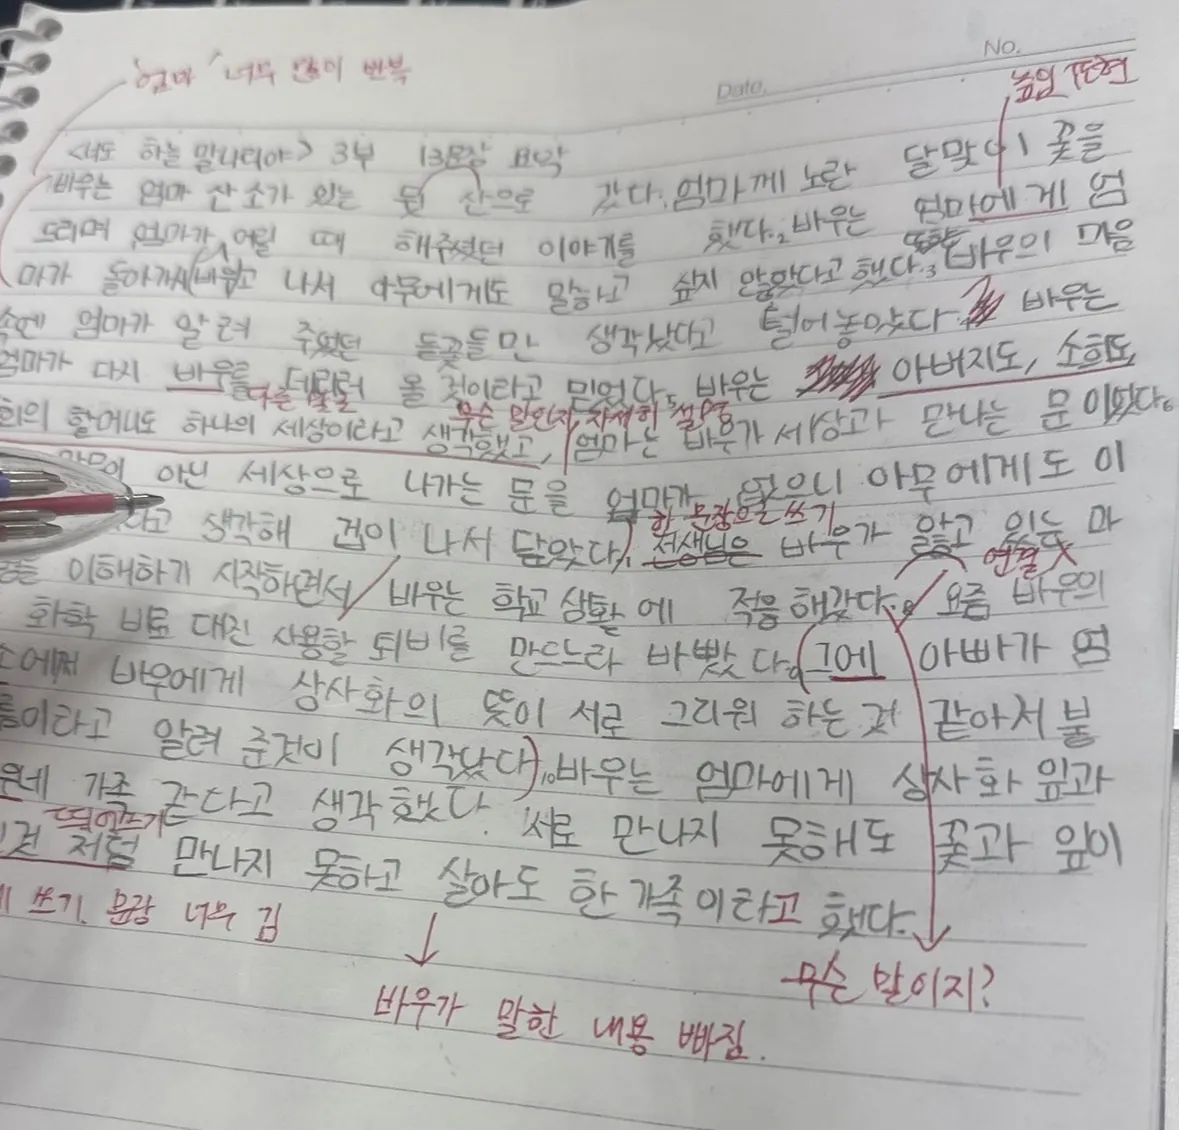 No.
Date.
엄마 너무 많이 반복
높임 표현
<너도 하늘말나리야> 3부 13문장 요약
바우는 엄마 산소가 있는 뒷 산으로 갔다. 엄마께 노란 달맞이 꽃을
드리며 엄마가 어릴 때 해주셨던 이야기를 했다.2 바우는 엄마에게 엄
마가 돌아가시고 나서 아무에게도 말하고 싶지 않았다고 했다.3 또한 바우의 마음
속엔 엄마가 알려 주었던 들꽃들만 생각났다고 털어놓았다. 바우는
엄마가 다시 바우를 데릴러 올 것이라고 믿었다.5 바우는 아버지도, 소희도,
무슨 말인지 자세히 설명
희의 할머니도 하나의 세상이라고 생각했고, 엄마는 바우가 세상과 만나는 문이었다.6
아닌 세상으로 나가는 문을 엄마가 닫았으니 아무에게도 이
한 문장으로 쓰기
라고 생각해 겁이 나서 닫았다. 선생님은 바우가 앓고 있는 마
연결 X
이해하기 시작하면서 바우는 학교 상황에 적응해갔다.8 요즘 바우의
화학 비료 대신 사용할 퇴비를 만드느라 바빴다.9 그에 아빠가 엄
소에서 바우에게 상사화의 뜻이 서로 그리워 하는 것 같아서 붙
름이라고 알려 준것이 생각났다.10 바우는 엄마에게 상사화 잎과
네 가족 같다고 생각했다. 서로 만나지 못해도 꽃과 잎이
띄어쓰기
것 처럼 만나지 못하고 살아도 한 가족이라고 했다.
쓰기. 문장 너무 김
무슨 말이지?
바우가 말한 내용 빠짐.